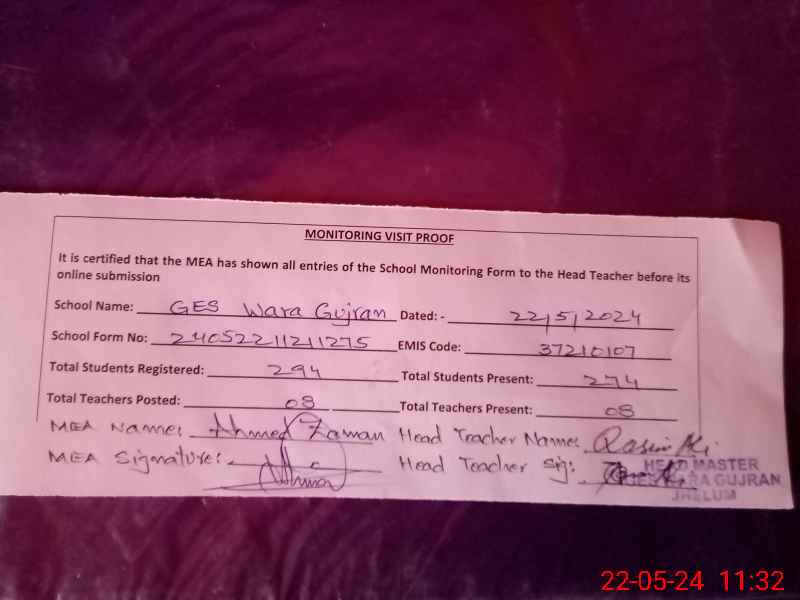 MONITORING VISIT PROOF
It is certified that the MEA has shown all entries of the School Monitoring Form to the Head Teacher before its
online submission
School Name: GES Wara Gujran Dated: - 22/5/2024
School Form No: 24052211211275 EMIS Code: 37210107
Total Students Registered: 294 Total Students Present: 274
Total Teachers Posted: 08 Total Teachers Present: 08
MEA Name: Ahmed Zaman Head Teacher Name: Qasim Ali
MEA Signature: Head Teacher Sig:
HEAD MASTER
GES WARA GUJRAN
JHELUM
22-05-24 11:32